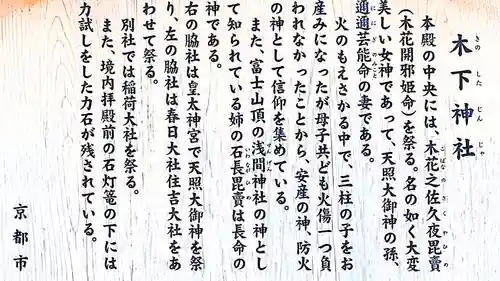 木下神社
きのしたじんじゃ
本殿の中央には、木花之佐久夜毘賣
このはなのさくやひめ
(木花開邪姫命)を祭る。名の如く大変
美しい女神であって、天照大御神の孫、
通通芸能命の妻である。
ににぎのみこと
火のもえさかる中で、三柱の子をお
産みになったが母子共ども火傷一つ負
われなかったことから、安産の神、防火
の神として信仰を集めている。
また、富士山頂の浅間神社の神とし
せんげん
て知られている姉の石長毘賣は長命の
いわながひめ
神である。
右の脇社は皇太神宮で天照大御神を祭
り、左の脇社は春日大社住吉大社をあ
わせて祭る。
別社では稲荷大社を祭る。
また、境内拝殿前の石灯篭の下には
力試しをした力石が残されている。
京都市